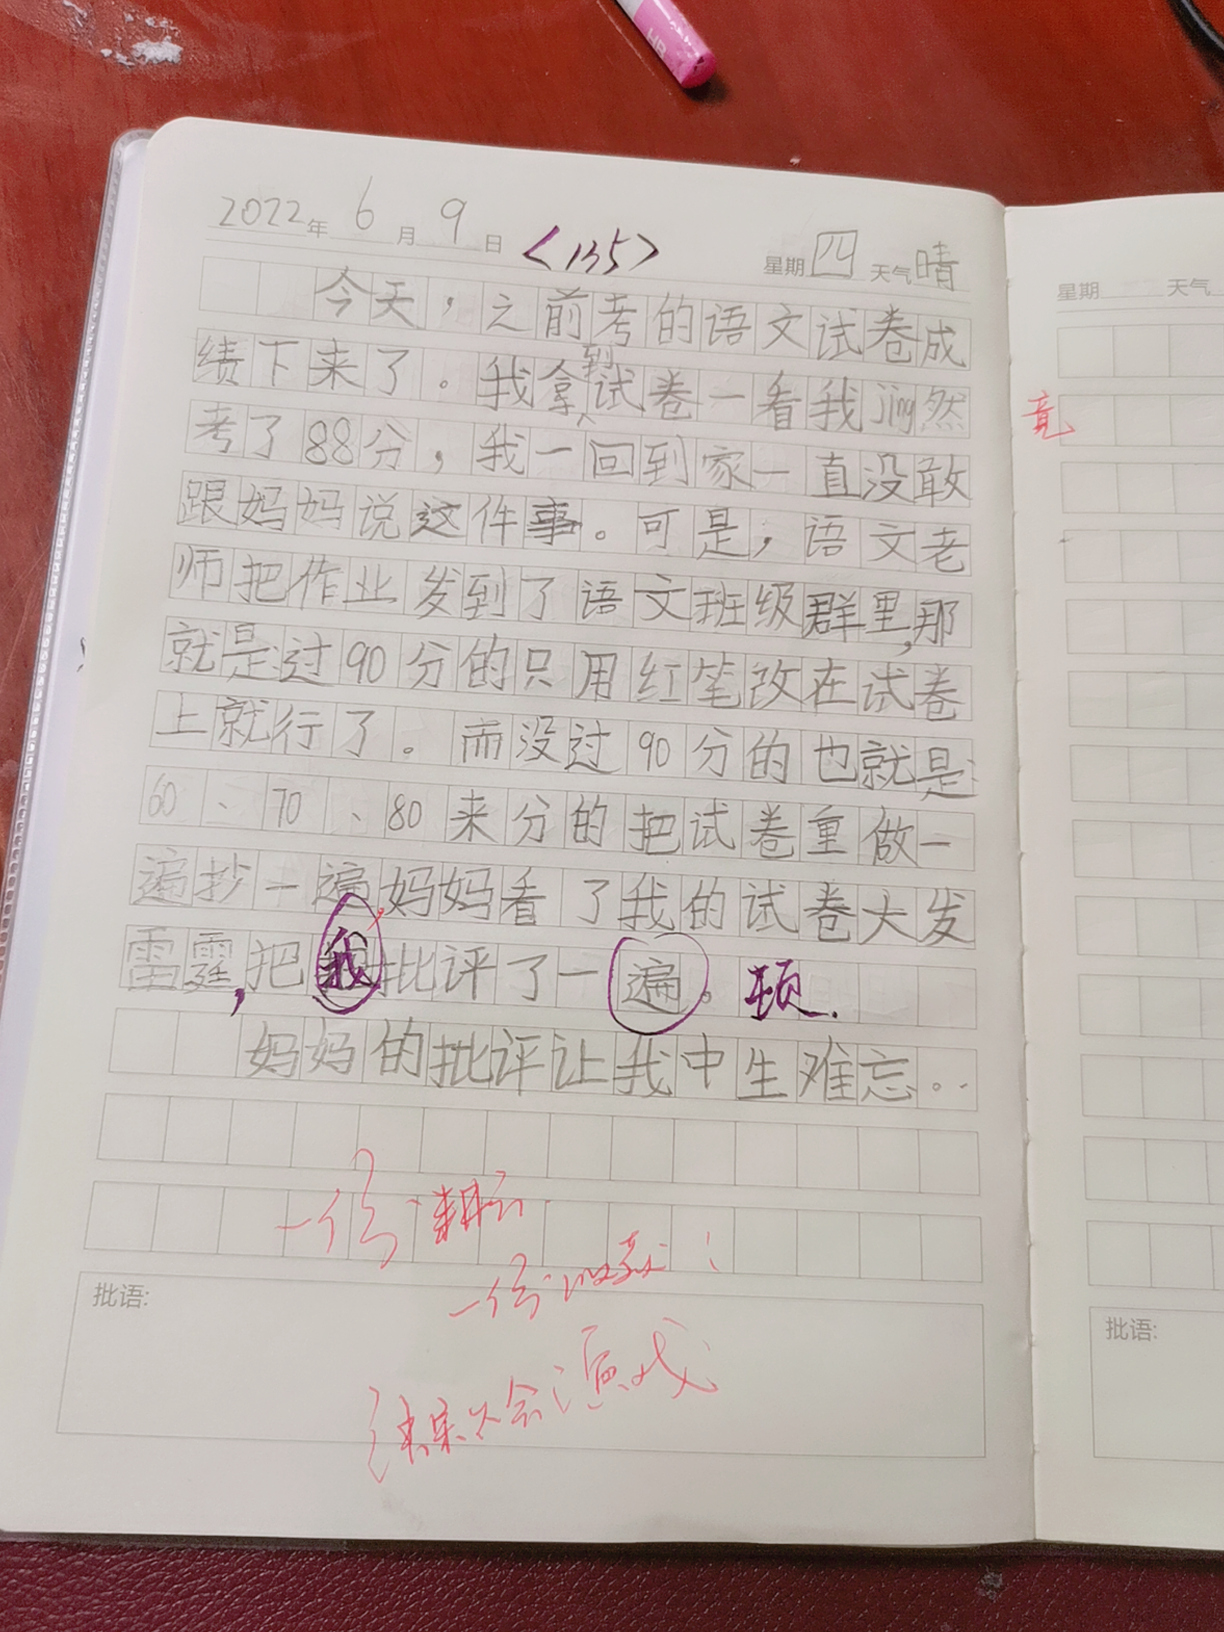 HB
2022年6月9日 <135> 星期四 天气晴
今天，之前考的语文试卷成
绩下来了。我拿到试卷一看我jing然
竟
考了88分，我一回到家一直没敢
跟妈妈说这件事。可是，语文老
师把作业发到了语文班级群里，那
就是:过90分的只用红笔改在试卷
上就行了。而没过90分的也就是:
60、70、80来分的把试卷重做一
遍抄一遍，妈妈看了我的试卷大发
雷霆，把我批评了一遍。顿.
妈妈的批评让我中生难忘。..
一份耕耘
一份收获!
批语:
星期 天气
批语: